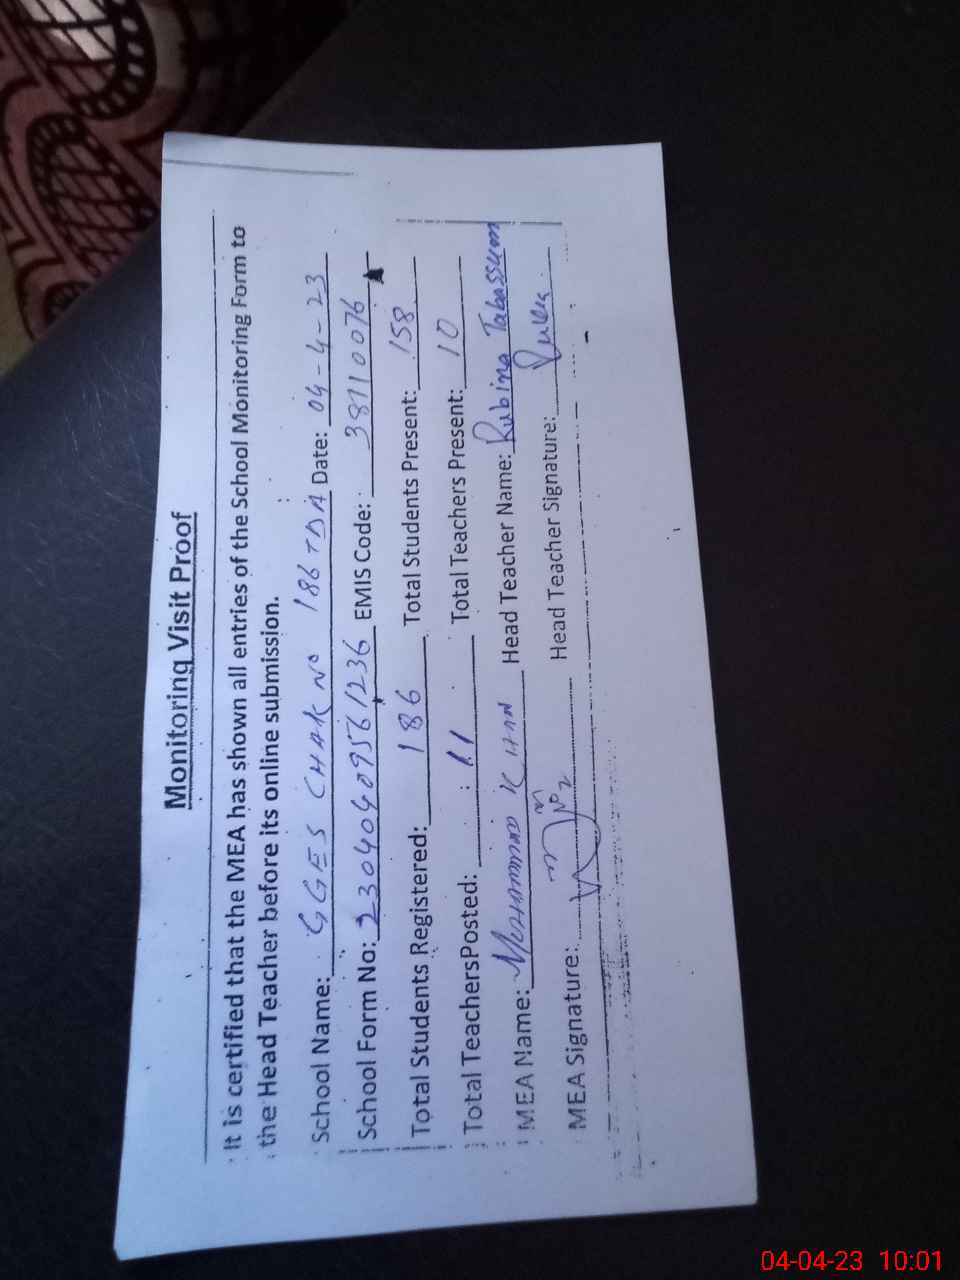 Monitoring Visit Proof
It is certified that the MEA has shown all entries of the School Monitoring Form to
the Head Teacher before its online submission.
School Name: GGES CHAK No 186 TDA Date: 04-4-23
School Form No: 23040409561236 EMIS Code: 38110076
Total Students Registered: 186 Total Students Present: 158
Total TeachersPosted: 11 Total Teachers Present: 10
MEA Name: Mohammad Khan Head Teacher Name: Rubina Tabassum
MEA Signature: Head Teacher Signature:
04-04-23 10:01